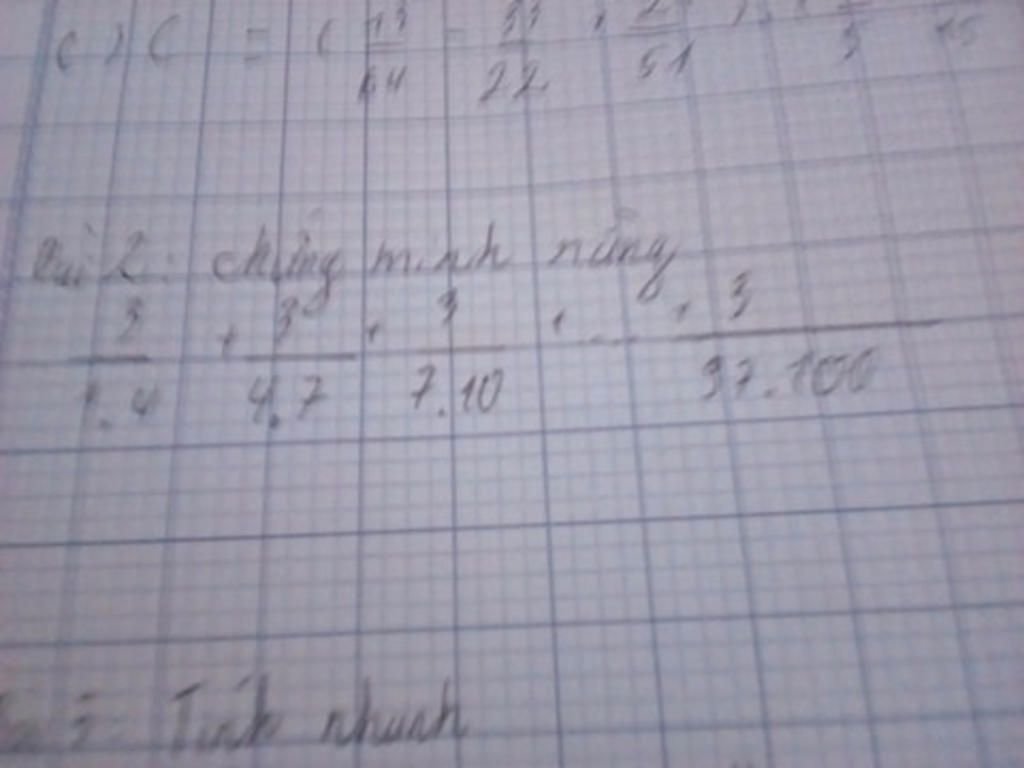 c) C = ( 13/64 - 33/22 + 2/51 ) . ( 1/3 15
Bài 2: chứng minh rằng
3/1.4 + 3/4.7 + 3/7.10 + ... + 3/97.100
Bài 3: Tính nhanh